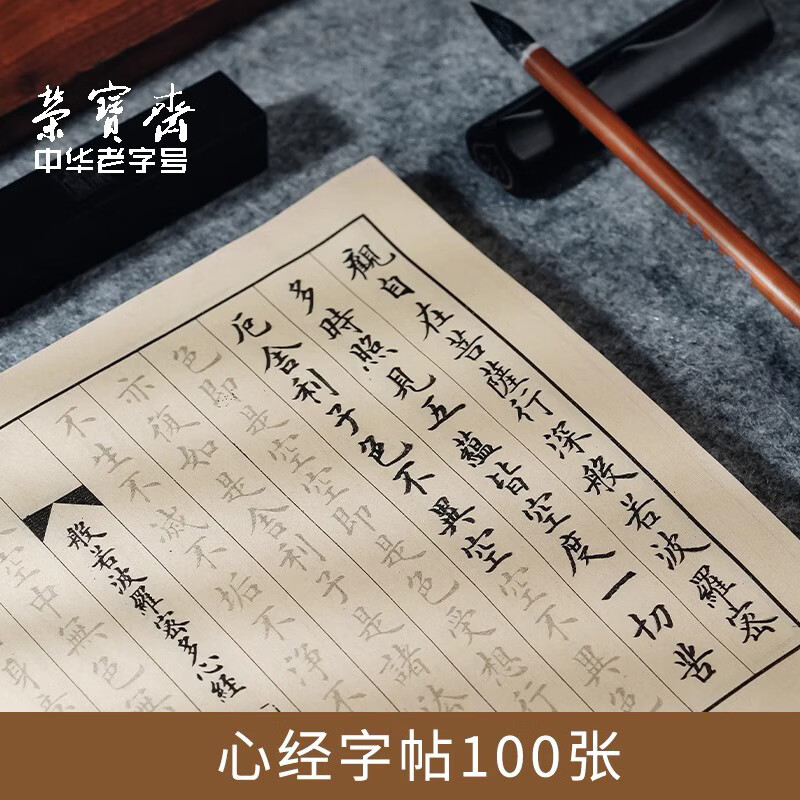 榮寶齋
中华老字号
觀自在菩薩行深般若波羅密
多時照見五蘊皆空度一切苦
厄舍利子色不異空空不異色
色即是空空即是色受想行
亦復如是舍利子是諸法
不生不滅不垢不淨不
般若波羅密多心經
空中無色無
身
心经字帖100张